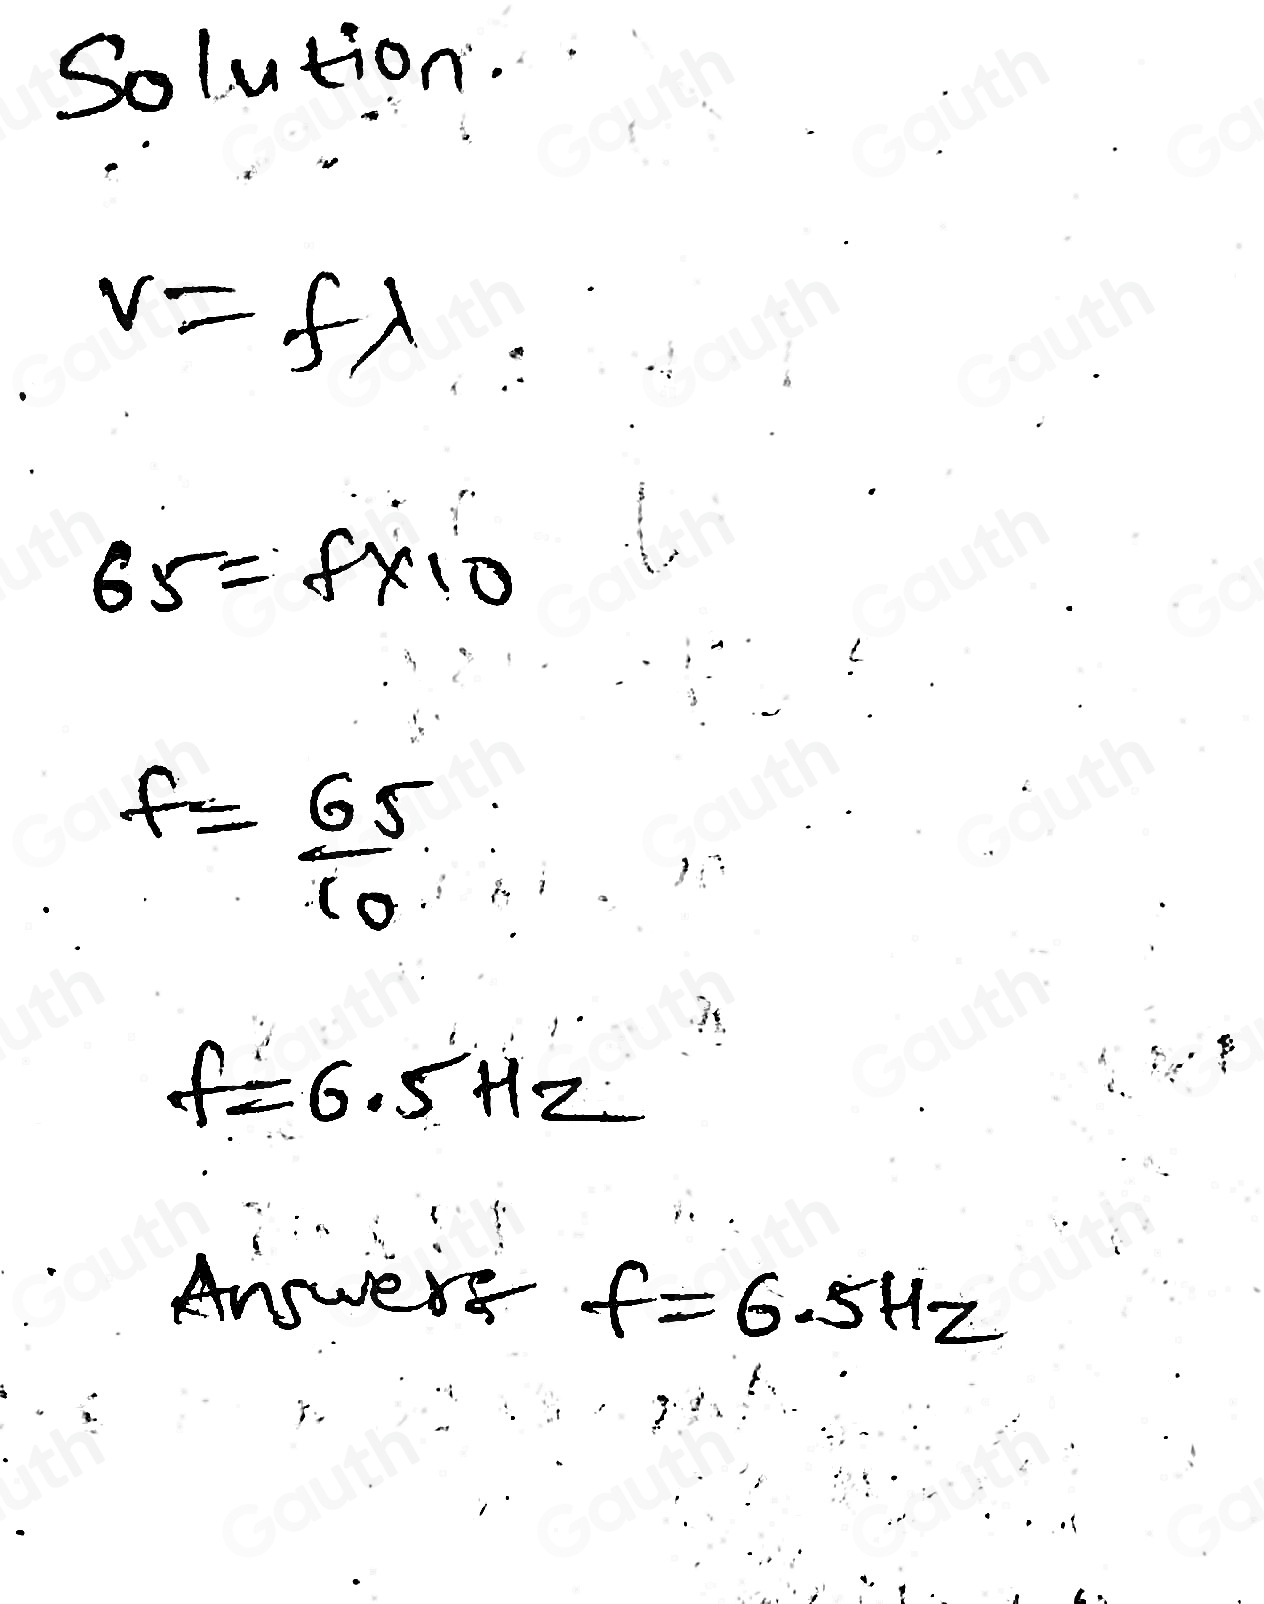 Solution.
v = fλ
65 = f×10
f = 65/10
f = 6.5 Hz
Answers f = 6.5Hz